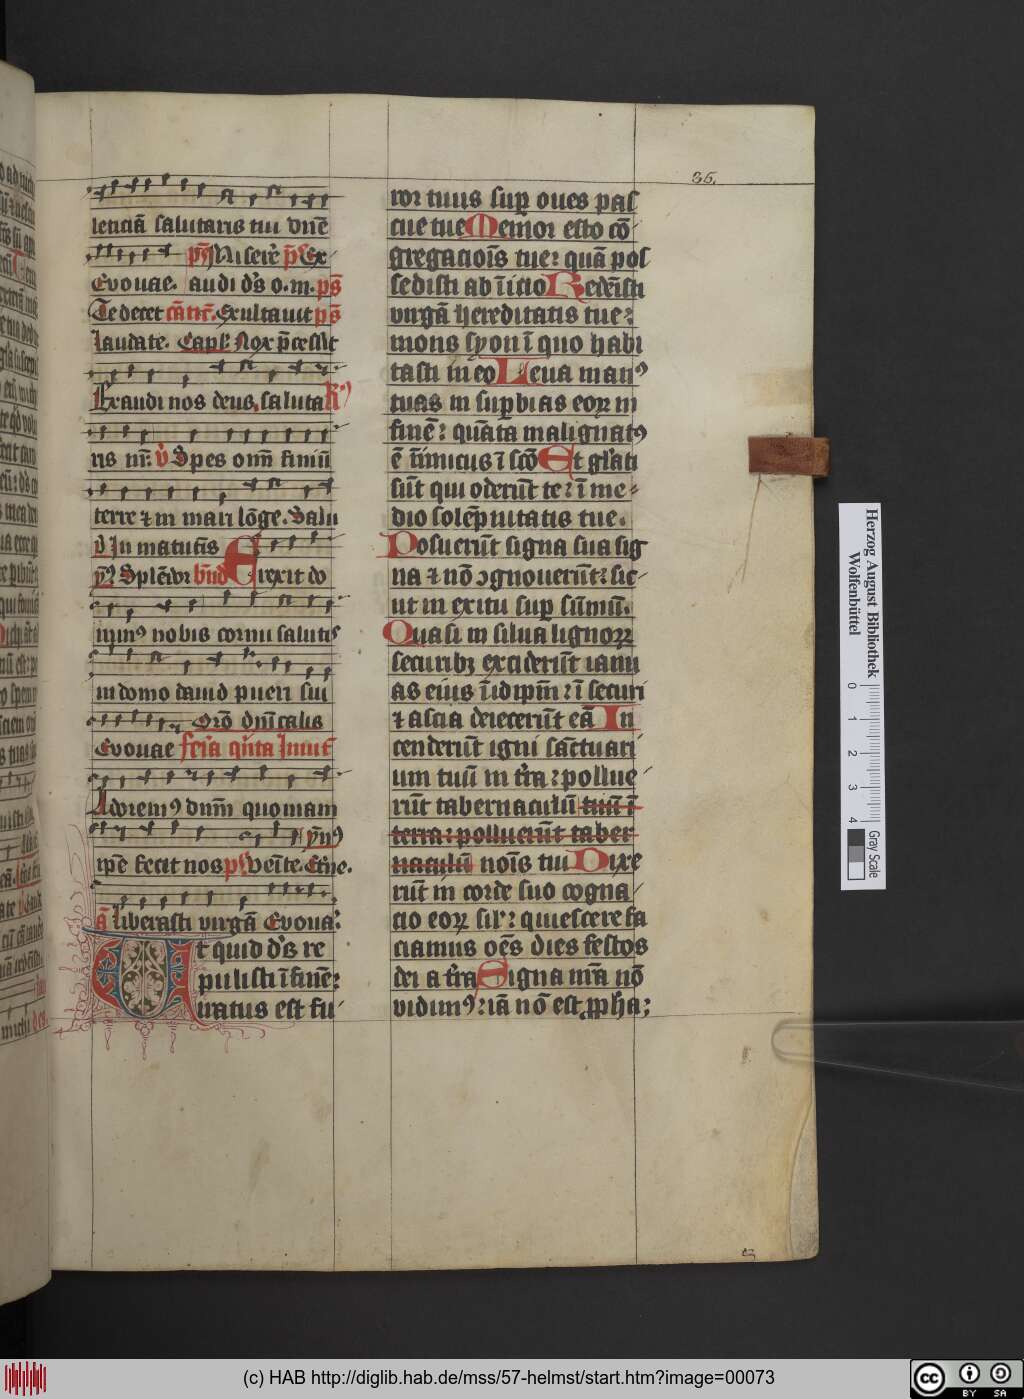 35.
leticiā salutaris tui dn̄e
ps̄ Miserē ps̄ Ex
Evouae. audi dꝰs o.m. ps̄
Te decet cātic̄. Exultauit ps̄
laudate. Capłm Nox p̄cessit
Exaudi nos deus, saluta R̄ꝰ
ris nr̄: v̓ Spes om̄ finiū
terre ⁊ in mari lōge. Salu
v̓ In matutīs
Splēdor bn̄d Erexit do
minꝰ nobis cornu salutis
in domo dauid pueri sui
Orō dn̄icalis
Evouae feria qīnta Inuit̄
Adoremꝰ dnm̄ quoniam
ipē fecit nos ps̄ Veīte.
ā liberasti virgā Evoua:
Ut quid dꝰs re
pulisti ī finē:
iratus est fu
ror tuus suꝑ oues pas
cue tue Memor esto cō
gregatiois̄ tue: quā pos
sedisti ab īitio Redēisti
virgā hereditatis tue:
mons syon ī quo habi
tasti in eo Leua manꝰ
tuas in suꝑbias eoꝝ in
finē: quāta malignatꝰ
ē īimicus ī scō Et gl̄iati
sūt qui oderūt te: ī me
dio solēpnitatis tue.
Posuerūt signa sua sig
na ⁊ nō ꝯgnouerūt: sic
ut in exitu suꝑ sūmū.
Quasi in silua lignoꝝ
securibꝫ exciderūt ianu
as eius īidipm̄: ī securi
⁊ ascia deiecerūt eā In
cenderūt igni sāctuari
um tuū in t̄ra: pollue
rūt tabernaculū tuū ī
terra: polluerūt taber
naculū nois̄ tui Dixe
rūt in corde suo cogna
cio eoꝝ sil̓: quiescere fa
ciamus oēs dies festos
dei a t̄ra Signa nr̄a nō
vidimꝰ: iā nō est ꝓpha:
Herzog August Bibliothek
Wolfenbüttel
0 1 2 3 4
Gray Scale
(c) HAB http://diglib.hab.de/mss/57-helmst/start.htm?image=00073
cc BY SA